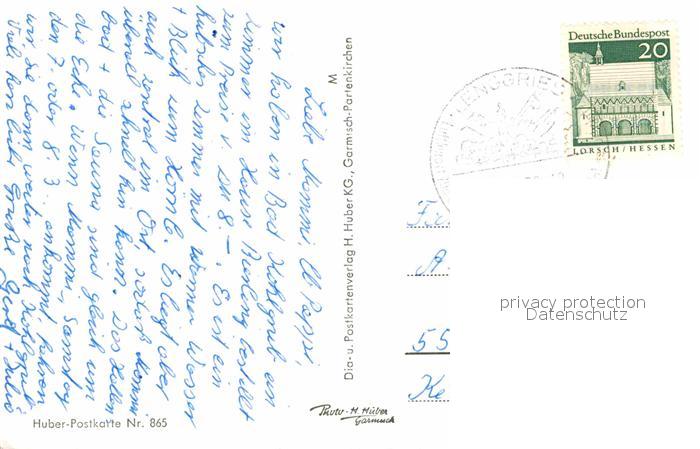 Liebe Mammi, ll Pappi,
wir haben in Bad Kohlgrub ein
Zimmer im Hause Riesling bestellt
zum Preis v DM 8.–. Es ist ein
hübsches Zimmer mit warmem Wasser
+ Blick zum Hörnle. Es liegt aber
auch zentral im Ort, sodaß Mammi
überall schnell hin kann. Das Hallen
bad + die Sauna sind gleich um
die Ecke. Wenn Mammi, Samstag
den 7. oder 8.3. ankommt fahren
wir sie dann weiter nach Kohlgrub.
Viele herzliche Grüße
M
Dia- u. Postkartenverlag H. Huber KG., Garmisch-Partenkirchen
Huber-Postkarte Nr. 865
Photo-H. Huber
Garmisch
LENGGRIES
Deutsche Bundespost
20
LORSCH/HESSEN
A.
55
Ke
privacy protection
Datenschutz